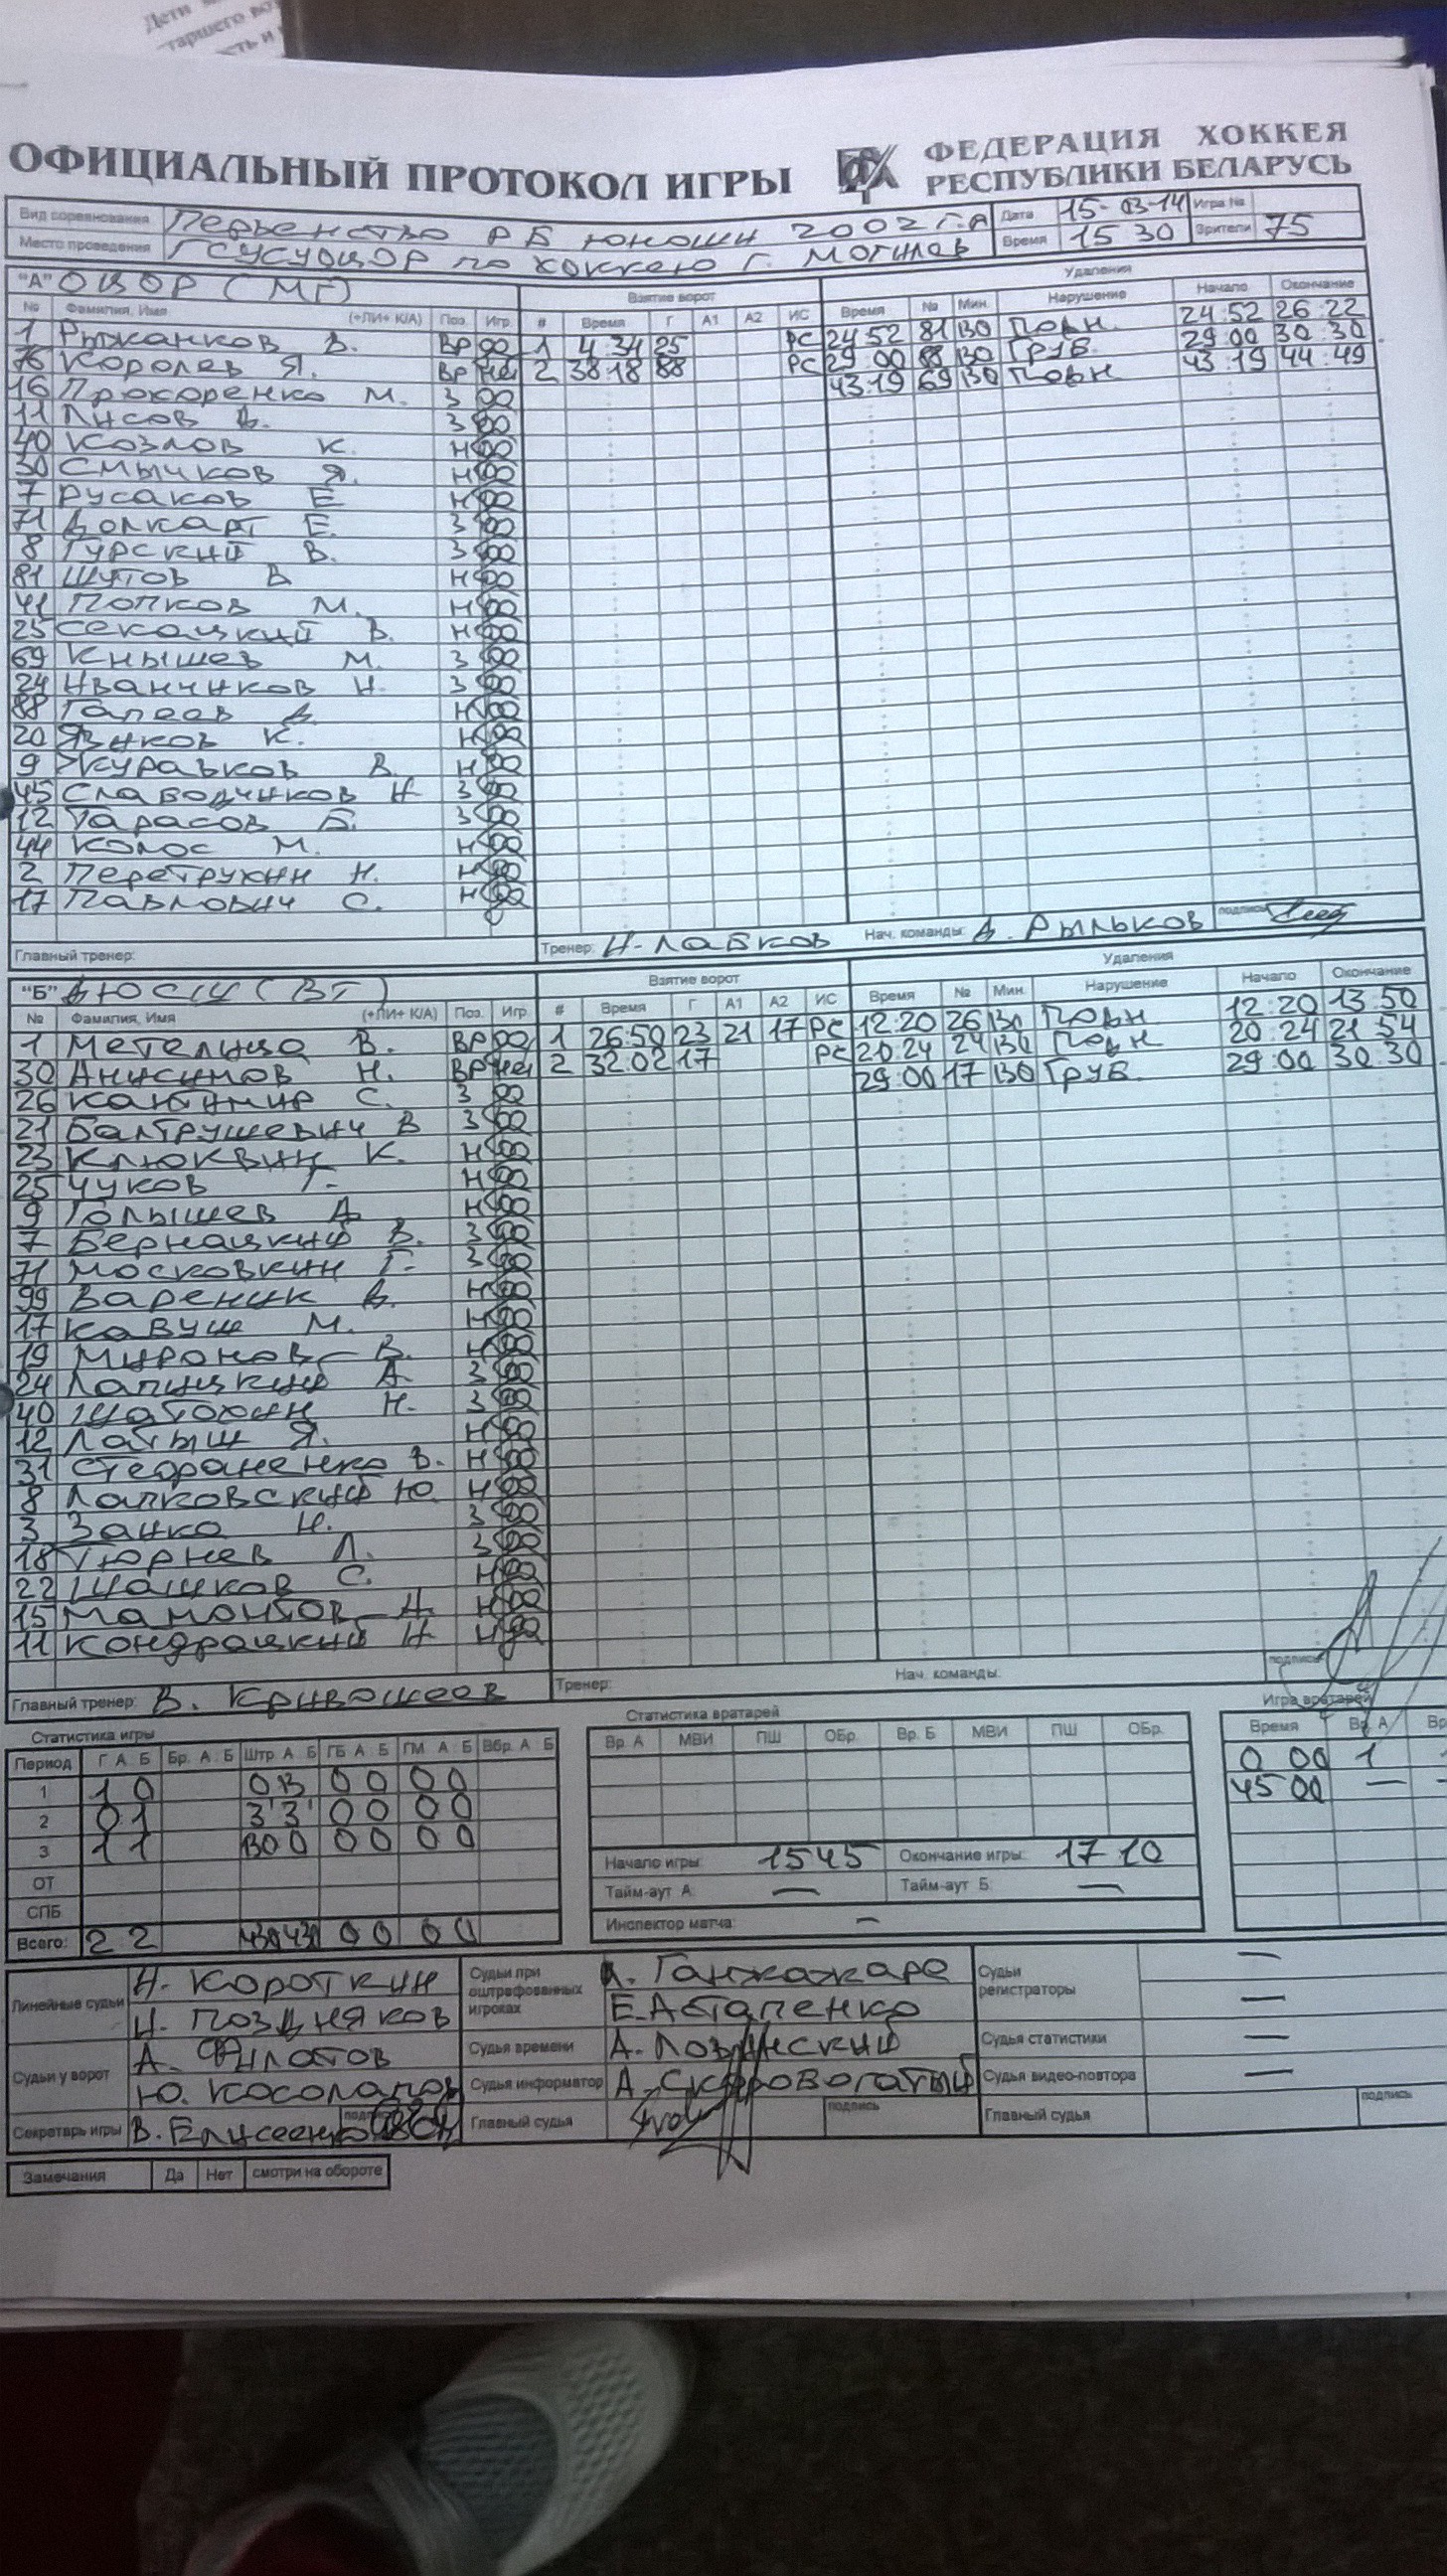 Дети
таршего во
сть и
ОФИЦИАЛЬНЫЙ ПРОТОКОЛ ИГРЫ ФЕДЕРАЦИЯ ХОККЕЯ РЕСПУБЛИКИ БЕЛАРУСЬ
Вид соревнования Первенство РБ юноши 2002 г.р Дата 15-03-14 Игра №
Место проведения ГСУСУ по хоккею г. Могилев Время 15 30 Зрители 75
"А" ОЦОР (МГ) Взятие ворот Удаления
№ Фамилия, Имя (+ЛИ+ К/А) Поз. Игр. # Время Г А1 А2 ИС Время № Мин. Нарушение Начало Окончание
1 Рыжанков В. ВР да 1 4 34 25 РС 24 52 81 1 30 Подн. 24 52 26 22
76 Королев Я. ВР нет 2 38 18 88 РС 29 00 88 1 30 Груб. 29 00 30 30
16 Прохоренко М. З да 43 19 69 1 30 Подн 43 19 44 49
11 Лисов В. З да
40 Козлов К. Н да
30 Смычков Я. Н да
7 Русаков Е Н да
71 Волкарт Е. З да
8 Гурский В. З да
81 Шутов В Н да
41 Попков М. Н да
25 Секацкий В. Н да
69 Кнышев М. З да
24 Иванчиков И. З да
88 Галеев А Н да
20 Языков К. Н да
9 Журавков В. Н да
45 Слабодчиков И З да
12 Тарасов Б. З да
44 Колос М. Н да
2 Перетрухин Н. Н да
17 Павлович С. Н да
Главный тренер: Тренер: И. Лабков Нач. команды: А. Рыльков подпись
"Б" ДЮСШ (ВТ) Взятие ворот Удаления
№ Фамилия, Имя (+ЛИ+ К/А) Поз. Игр. # Время Г А1 А2 ИС Время № Мин. Нарушение Начало Окончание
1 Метелица В. ВР да 1 26:50 23 21 17 РС 12:20 26 1 30 Подн 12:20 13:50
30 Анисимов Н. ВР нет 2 32:02 17 РС 20:24 24 1 30 Подн 20:24 21:54
26 Кантимир С. З да 29:00 17 1 30 Груб. 29:00 30:30
21 Балтрушевич В З да
23 Клюквин К. Н да
25 Чуков Г. Н да
9 Голышев А Н да
7 Бернацкий В. З да
71 Московкин Г. З да
99 Вареник В. Н да
17 Кавуш М. Н да
19 Миронов В. Н да
24 Лапицкий А З да
40 Шатохин Н. З да
12 Латыш Я. Н да
31 Стефаненко В. Н да
8 Лапковский Ю. Н да
3 Занко Н. З да
18 Тюрнев Л. З да
22 Шашков С. Н да
15 Мамонтов А. Н да
11 Кондрацкий И Н да
Главный тренер: В. Кривошеев Тренер: Нач. команды: подпись
Статистика игры Статистика вратарей Игра вратарей
Период Г А Б Бр. А Б Штр. А Б ГБ А Б ГМ А Б Вбр. А Б Вр. А МВИ ПШ ОБр. Вр. Б МВИ ПШ ОБр. Время Вр. А Вр
1 1 0 0 0 0 0 0 00 1
2 0 1 3' 3' 0 0 0 0 45 00 —
3 1 1 130 0 0 0 0 0 Начало игры: 15 45 Окончание игры: 17 10
ОТ Тайм-аут А: — Тайм-аут Б: —
СПБ Инспектор матча: —
Всего: 2 2 430 430 0 0 0 0
Линейные судьи Н. Короткин Судьи при оштрафованных игроках Судьи регистраторы —
Н. Поздняков Е. Астапенко —
Судьи у ворот А. Филатов Судья времени А. Лозинский Судья статистики —
Ю. Косолапов Судья информатор А. Скоробогатый Судья видео-повтора —
Секретарь игры В. Елисеенко Главный судья подпись Главный судья подпись
Замечания Да Нет смотри на обороте